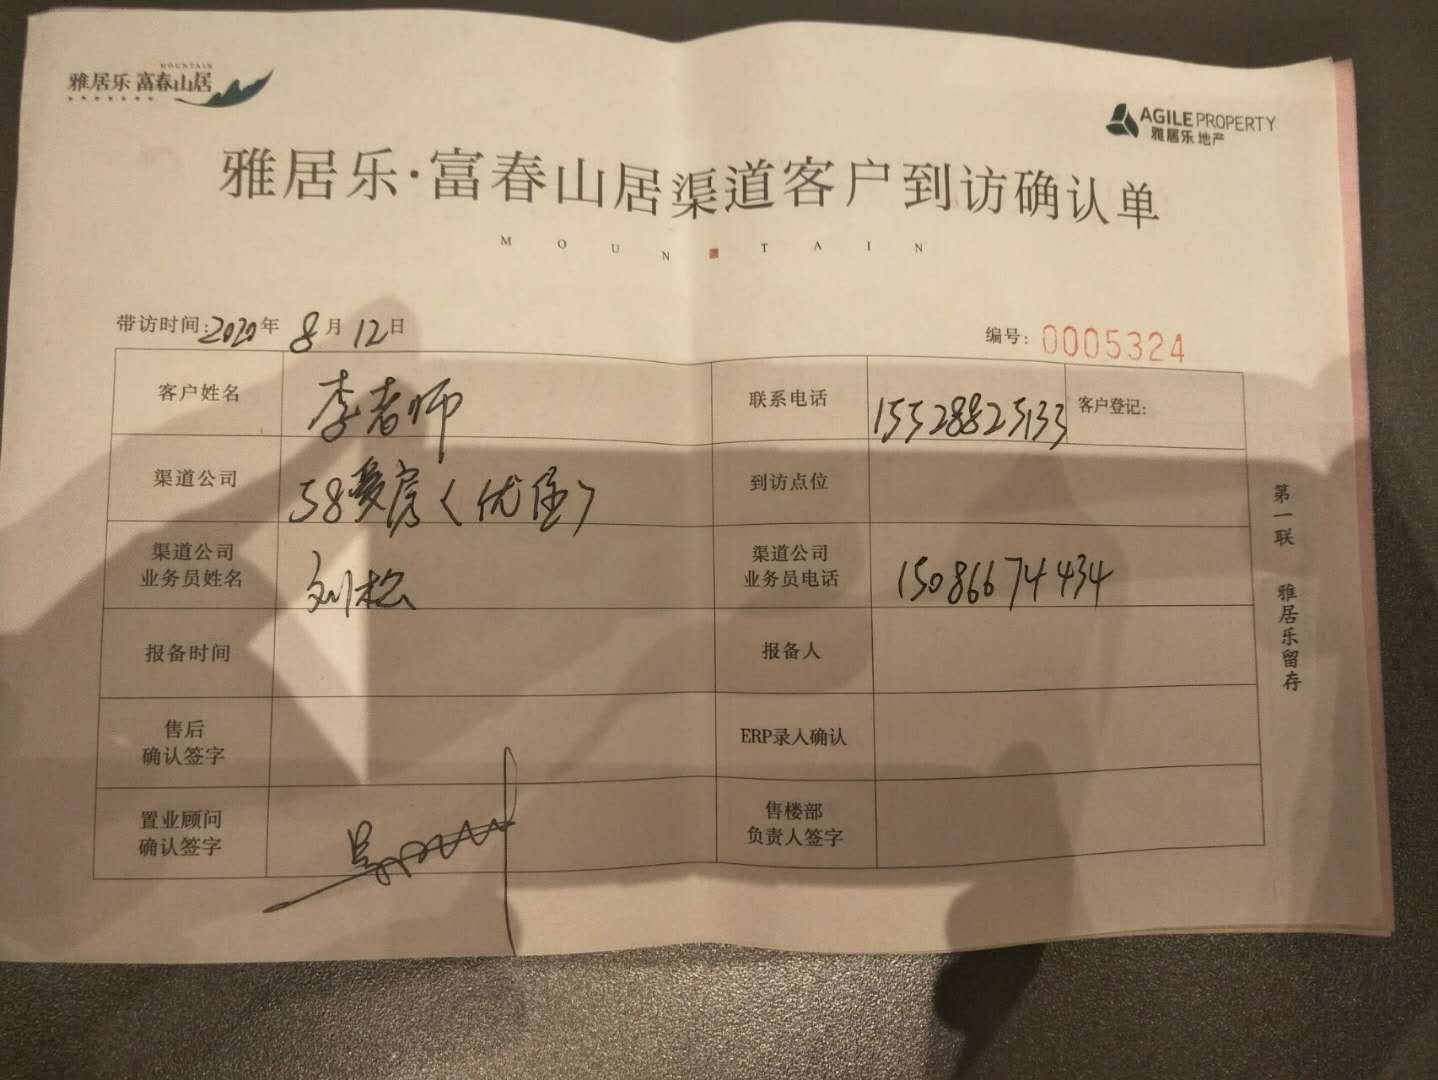 MOUNTAIN
雅居乐 富春山居
AGILE PROPERTY
雅居乐 地产
雅居乐·富春山居渠道客户到访确认单
MOUNTAIN
带访时间:2020年 8月 12日
编号: 0005324
客户姓名 李老师 联系电话 15528825133 客户登记:
渠道公司 58爱房(优居) 到访点位
渠道公司
业务员姓名 刘松 渠道公司
业务员电话 15086674434
报备时间 报备人
售后
确认签字 ERP录入确认
置业顾问
确认签字 售楼部
负责人签字
第一联 雅居乐留存